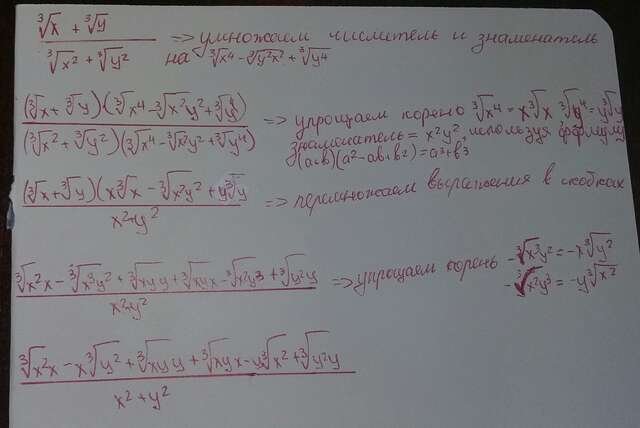 ∛x + ∛y / ∛x² + ∛y² => умножаем числитель и знаменатель
на ∛x⁴ - ∛y²x² + ∛y⁴
(∛x + ∛y)·(∛x⁴ - ∛x²y² + ∛y⁴) / (∛x² + ∛y²)(∛x⁴ - ∛x²y² + ∛y⁴) => упрощаем корень ∛x⁴ = x∛x ∛y⁴ = y∛y
знаменатель = x²y², используя формулу
(a+b)(a² - ab + b²) = a³ + b³
(∛x + ∛y)(x∛x - ∛x²y² + y∛y / x² + y² => перемножаем выражения в скобках
∛x²x - ∛x³y² + ∛xyy + ∛xyx - ∛x²y³ + ∛y²y / x² + y² => упрощаем корень -∛x³y² = -x∛y²
-∛x²y³ = -y∛x²
∛x²x - x∛y² + ∛xyy + ∛xyx - y∛x² + ∛y²y / x² + y²